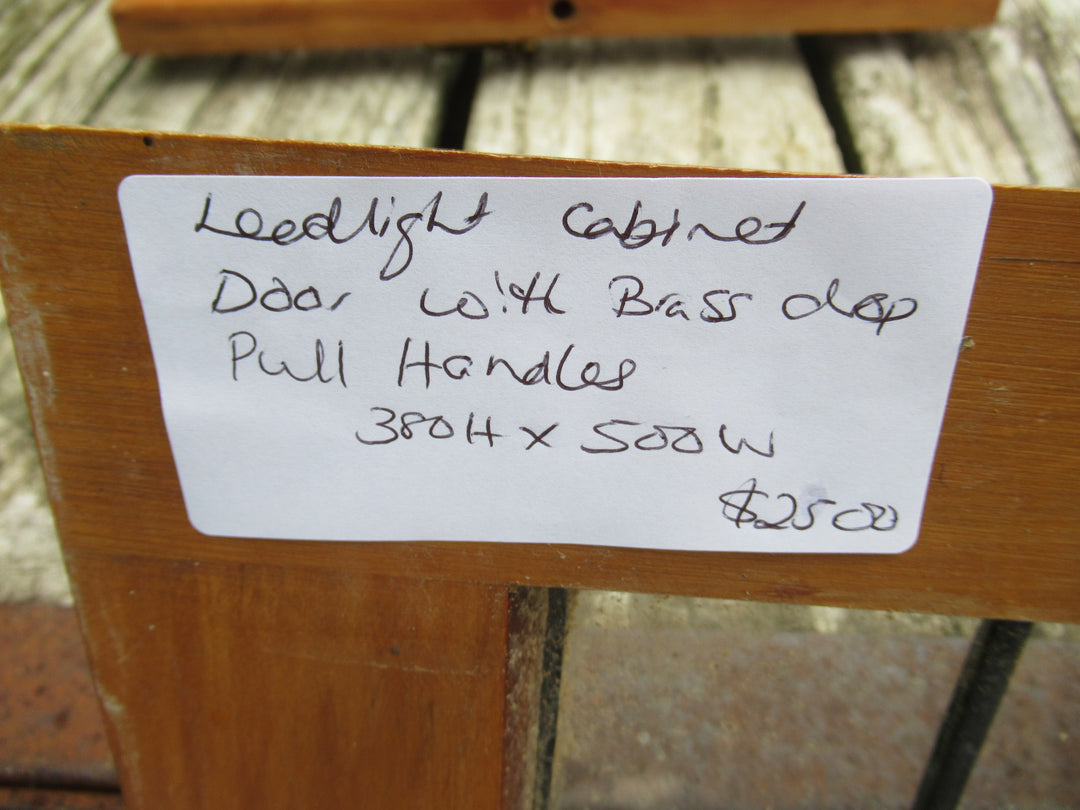 Leadlight Cabinet
Door with Brass drop
Pull Handles
380H x 500W
$2500